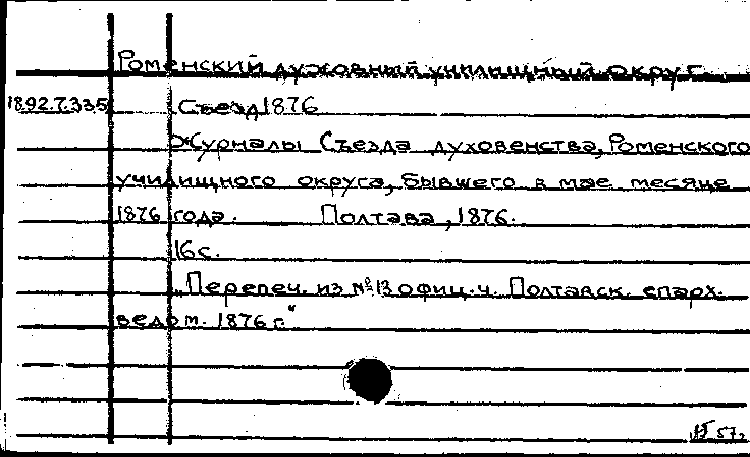 Роменский духовный училищный округ.
18.92.7.335 Съезд 1876
Журналы Съезда духовенства, Роменского
училищного округа, бывшего в мае месяце
1876 года. Полтава, 1876.
16 с.
„Перепеч. из №13 офиц. ч. Полтавск. епарх.
ведом. 1876 г."
57